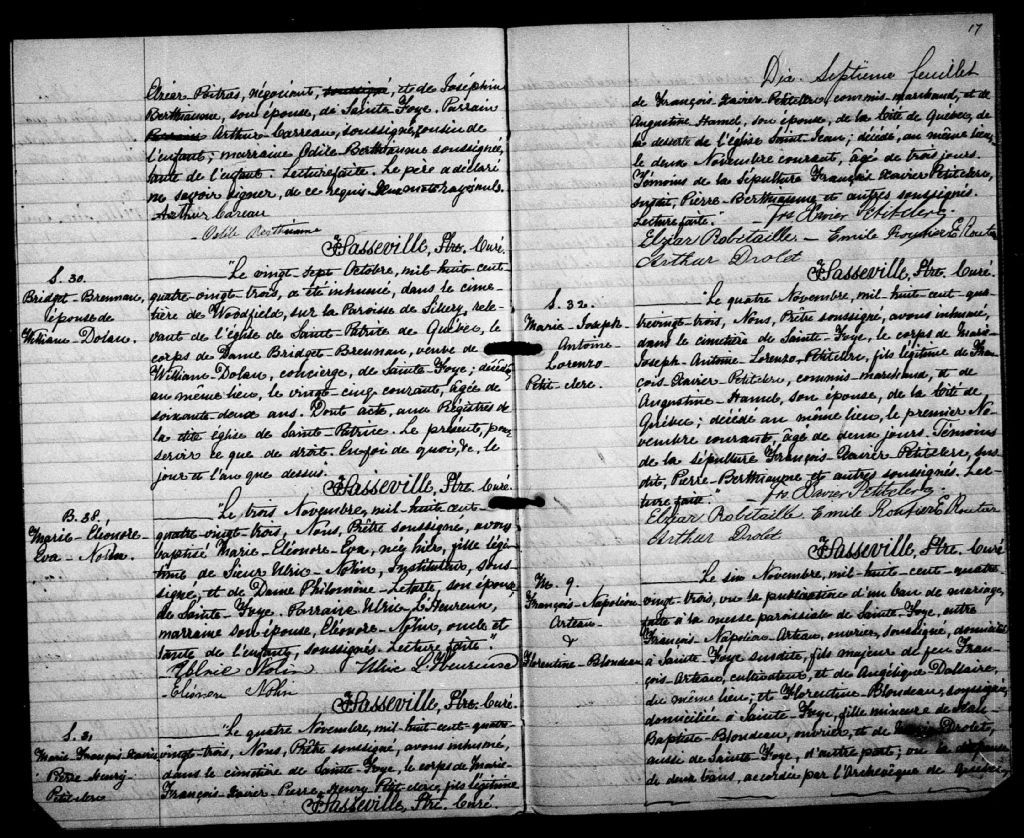 Elzéar Poitras, négociant, soussigné, et de Joséphine
Berthiaume, son épouse, de Sainte Foye. Parrain
Arthur Carreau, soussigné, cousin de
l'enfant; marraine Odile Berthiaume soussignée,
tante de l'enfant. Lecture faite. Le père a déclaré
ne savoir signer, de ce requis. mots rayés nuls.
Arthur Careau
Odile Berthiaume
FHSasseville, Ptre. Curé.
S. 30.
Bridget-Brennan,
épouse de
William Dolan.
"Le vingt sept Octobre, mil-huit-cent-
quatre-vingt trois, a été inhumé, dans le cime-
tière de Woodfield, sur la Paroisse de Sillery, rele-
vant de l'église de Saint-Patrice de Québec, le
corps de Dame Bridget-Brennan, veuve de
William Dolan, concierge, de Sainte-Foye; décédée
au même lieu, le vingt-cinq courant, âgée de
soixante-deux ans. Dont acte, aux Régistres de
la dite église de Sainte-Patrice. Le présent, pour
servir ce que de droit. En foi de quoi, &c, le
jour et l'an que dessus."
FHSasseville, Ptre. Curé.
B. 38.
Marie-Eléonore-
Eva-Nolin.
"Le trois Novembre, mil-huit-cent-
quatre-vingt-trois, Nous, Prêtre soussigné, avons
baptisé Marie-Eléonore-Eva, née hier, fille légi-
time de Sieur Ulric-Nolin, Instituteur, sous-
signé, et de Dame Philomène-Letarte, son épouse,
de Sainte-Foye. Parrain Ulric L'Heureux,
marraine son épouse, Eléonore-Nolin, oncle et
tante de l'enfant, soussignés. Lecture faite."
Nolin Ulric L'Heureux
Nolin
FHSasseville, Ptre. Curé.
S. 31
Marie François Xavier
Pierre Henry
Petitclerc
"Le quatre Novembre, mil-huit-cent-quatre-
vingt-trois, Nous, Prêtre soussigné, avons inhumé,
dans le cimetière de Sainte-Foye, le corps de Marie-
François-Xavier Pierre, Henry Petitclerc, fils légitime
FHSasseville, Ptre. Curé.
17
Dix-Septième feuillet
de François-Xavier Petitclerc, commis-marchand, et de
Augustine Hamel, son épouse, de la Cité de Québec, de
la desserte de l'église Saint-Jean; décédé, au même lieu,
le deux Novembre courant, âgé de trois jours.
Témoins de la Sépulture François Xavier Petitclerc,
susdit, Pierre-Berthiaume et autres soussignés.
Lecture faite." Frs Xavier Petitclerc
Elzéar Robitaille – Emile Routier E Routier
Arthur Drolet
FHSasseville, Ptre. Curé.
S. 32.
Marie-Joseph-
Antoine-
Lorenzo-
Petitclerc.
"Le quatre Novembre, mil-huit-cent-qua-
trevingt-trois, Nous, Prêtre soussigné, avons inhumé,
dans le cimetière de Sainte-Foye, le corps de Marie-
Joseph-Antoine-Lorenzo, Petitclerc, fils légitime de Fran-
çois-Xavier-Petitclerc, commis-marchand, et de
Augustine-Hamel, son épouse, de la Cité de
Québec; décédé au même lieu, le premier No-
vembre courant, âgé de deux jours. Témoins
de la sépulture François-Xavier-Petitclerc, sus-
dit, Pierre-Berthiaume et autres soussignés. Lec-
ture faite." Frs Xavier Petitclerc
Elzéar Robitaille Emile Routier E Routier
Arthur Drolet
FHSasseville, Ptre. Curé
M. 9.
François-Napoléon
Arteau
&
Florentine-Blondeau
"Le six Novembre, mil-huit-cent-quatre
vingt-trois, vu la publication d'un ban de mariage,
faite à la messe paroissiale de Sainte-Foye, entre
François-Napoléon-Arteau, ouvrier, soussigné, domicilié
à Sainte-Foye susdite, fils majeur de feu Fran-
çois-Arteau, cultivateur, et de Angélique-Dallaire,
du même lieu; et Florentine-Blondeau, soussignée,
domiciliée à Sainte-Foye, fille mineure de Jean-
Baptiste-Blondeau, ouvrier, et de Drolet,
aussi de Sainte-Foye, d'autre part; vu la dispense
de deux bans, accordée par l'Archevêque de Québec,